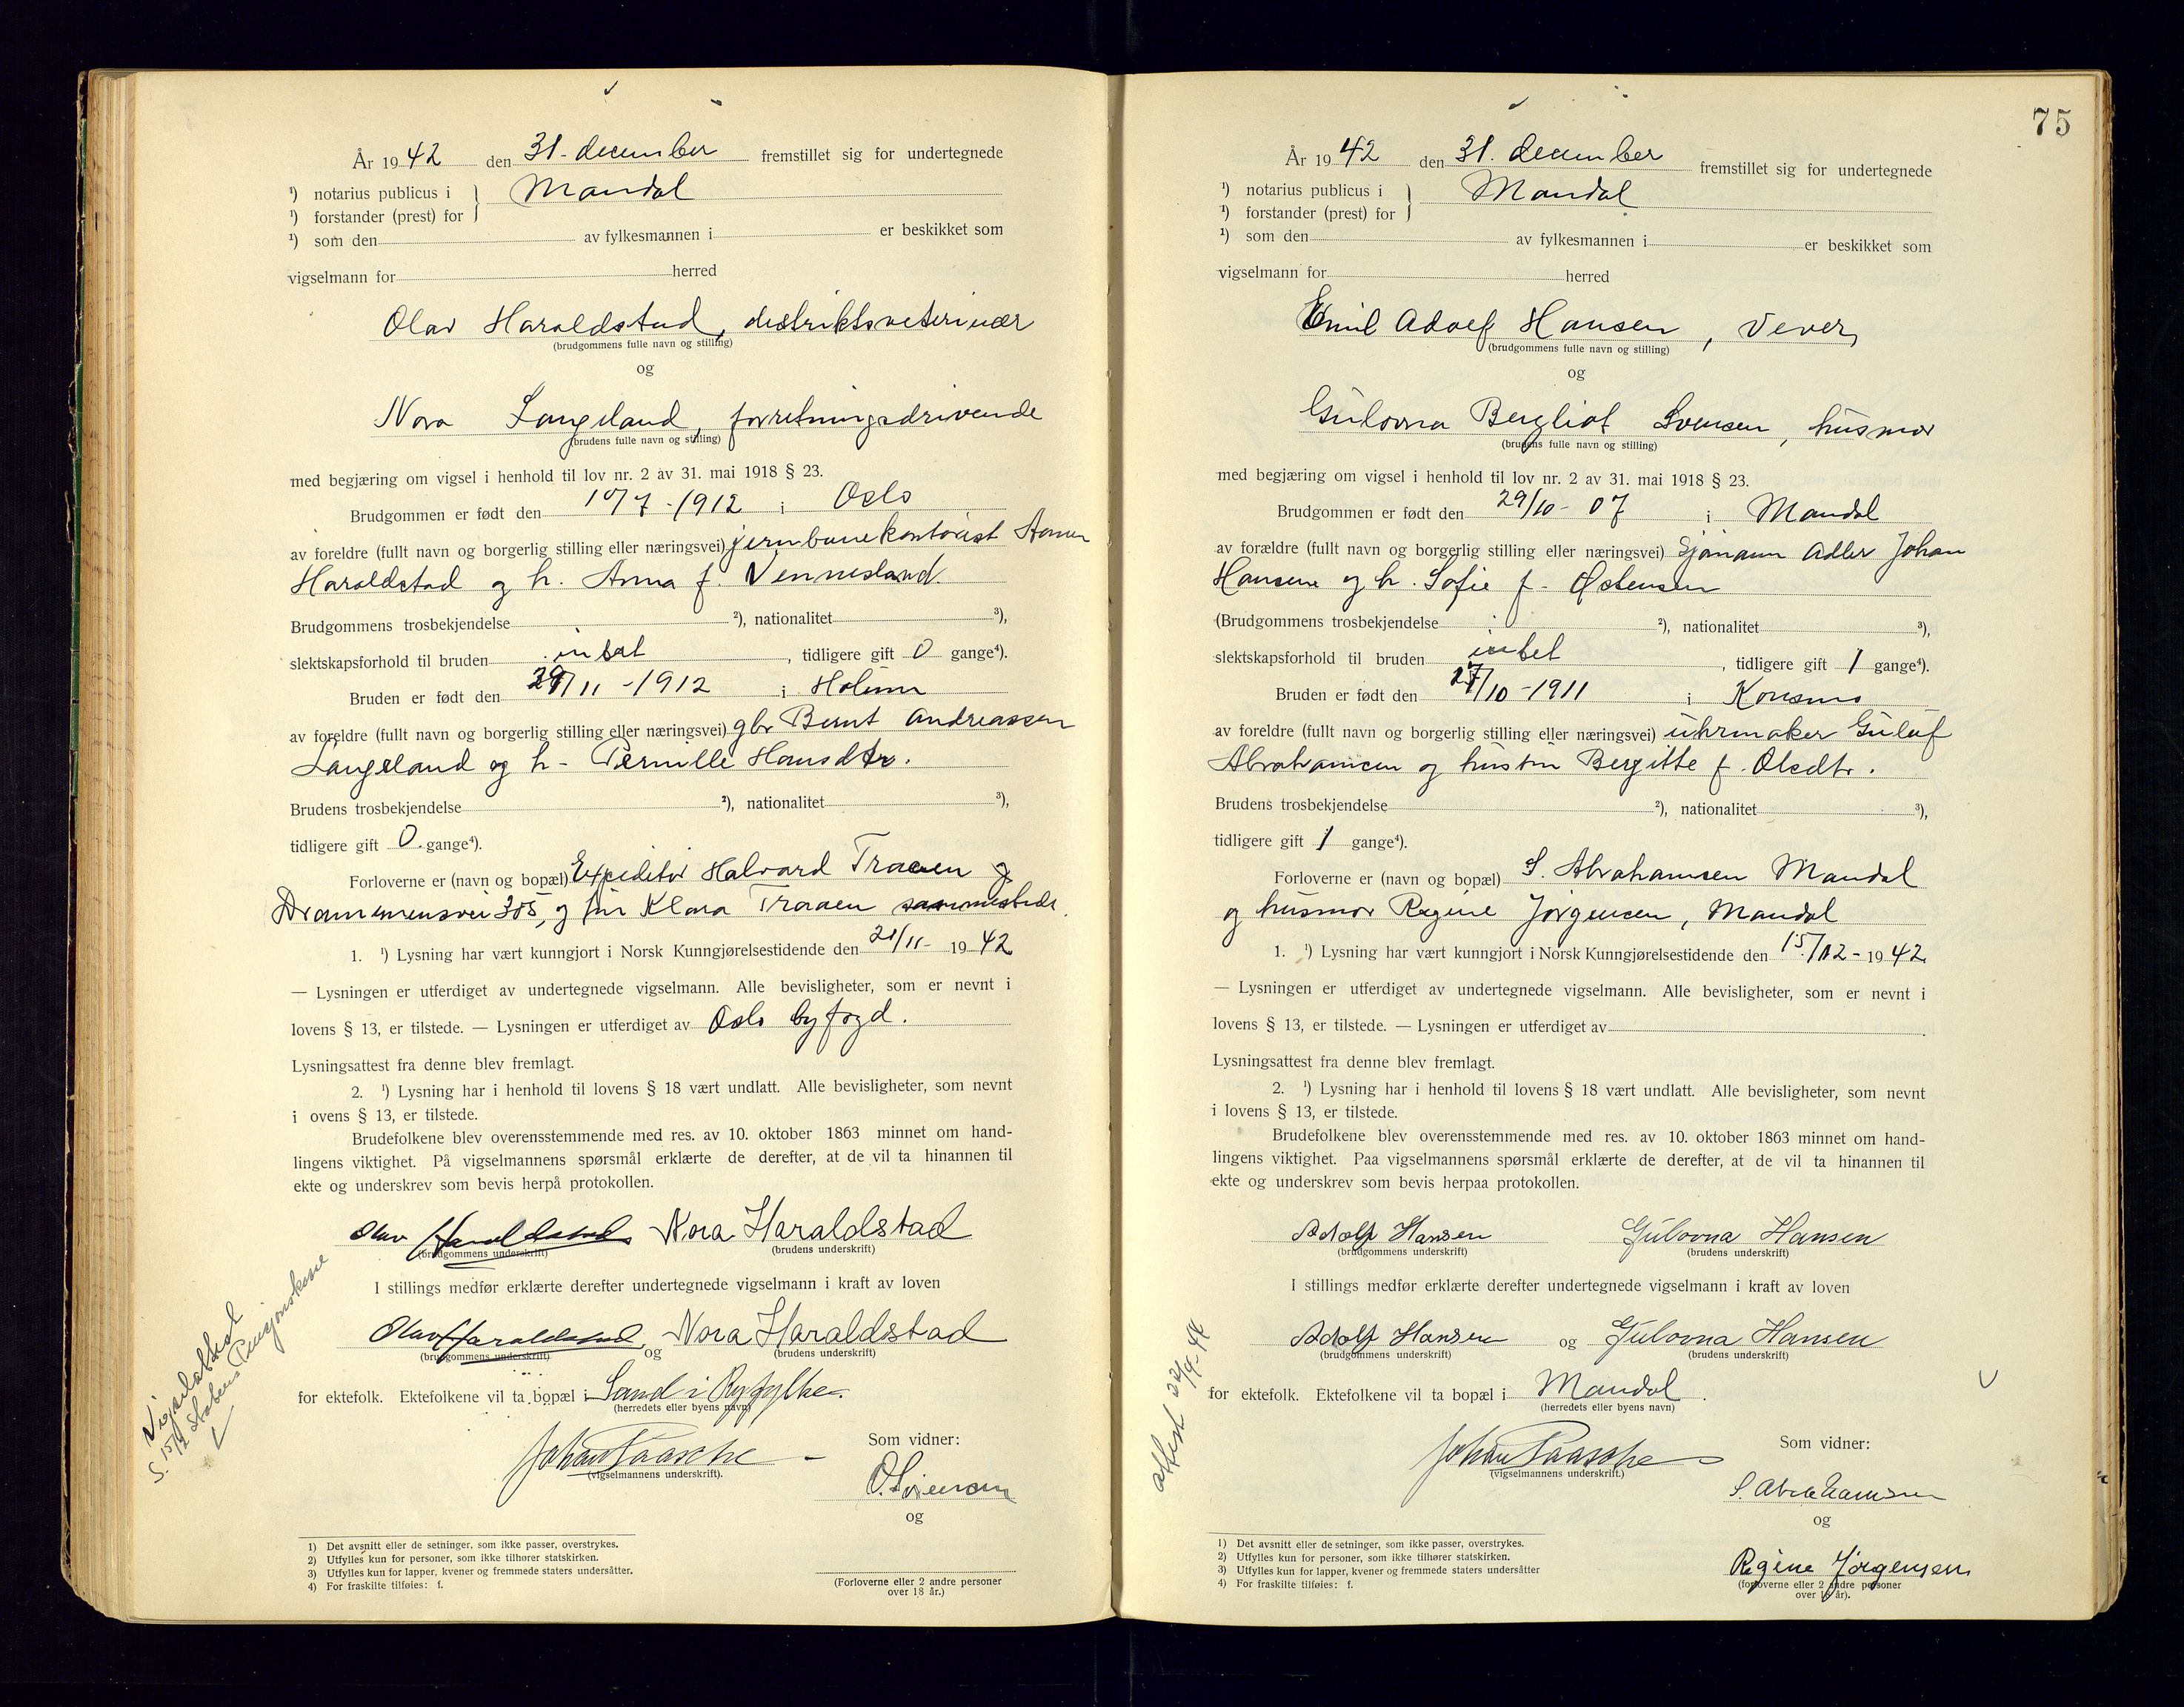 År 1942 den 31. december fremstillet sig for undertegnede
¹) notarius publicus i } Mandal
¹) forstander (prest) for
¹) som den av fylkesmannen i er beskikket som
vigselmann for herred
Olav Haraldstad, distriktsveterinær
(brudgommens fulle navn og stilling)
og
Nora Langeland, forretningsdrivende
(brudens fulle navn og stilling)
med begjæring om vigsel i henhold til lov nr. 2 av 31. mai 1918 § 23.
Brudgommen er født den 10/7 - 1912 i Oslo
av foreldre (fullt navn og borgerlig stilling eller næringsvei) jernbanekontorist
Haraldstad og h. Anna f. Vennesland.
Brudgommens trosbekjendelse ²), nationalitet ³),
slektskapsforhold til bruden intet, tidligere gift 0 gange⁴).
Bruden er født den /11 - 1912 i Holum
av foreldre (fullt navn og borgerlig stilling eller næringsvei) gbr Bernt Andreassen
Langeland og h - Pernille Hansdtr.
Brudens trosbekjendelse ²), nationalitet ³),
tidligere gift 0 gange⁴).
Forloverne er (navn og bopæl) Expeditør Halvard Traaen
Drammensvei 305, og fru Klara Traaen sammesteds.
1. ¹) Lysning har vært kunngjort i Norsk Kunngjørelsestidende den 21/11 - 1942
— Lysningen er utferdiget av undertegnede vigselmann. Alle bevisligheter, som er nevnt i
lovens § 13, er tilstede. — Lysningen er utferdiget av Oslo byfogd.
Lysningsattest fra denne blev fremlagt.
2. ¹) Lysning har i henhold til lovens § 18 vært undlatt. Alle bevisligheter, som nevnt
i ovens § 13, er tilstede.
Brudefolkene blev overensstemmende med res. av 10. oktober 1863 minnet om hand-
lingens viktighet. På vigselmannens spørsmål erklærte de derefter, at de vil ta hinannen til
ekte og underskrev som bevis herpå protokollen.
Olav Haraldstad Nora Haraldstad
(brudgommens underskrift) (brudens underskrift)
I stillings medfør erklærte derefter undertegnede vigselmann i kraft av loven
Olav Haraldstad og Nora Haraldstad
(brudgommens underskrift) (brudens underskrift)
for ektefolk. Ektefolkene vil ta bopæl i Sand i Ryfylke.
(herredets eller byens navn)
Johan Paasche
(vigselmannens underskrift).
Som vidner:
O. Sørensen
og
(Forloverne eller 2 andre personer
over 18 år.)
Vigselattest
s. 15/12 Statens Pensjonskasse
1) Det avsnitt eller de setninger, som ikke passer, overstrykes.
2) Utfylles kun for personer, som ikke tilhører statskirken.
3) Utfylles kun for lapper, kvener og fremmede staters undersåtter.
4) For fraskilte tilføies: f.
75
År 1942 den 31. december fremstillet sig for undertegnede
¹) notarius publicus i } Mandal
¹) forstander (prest) for
¹) som den av fylkesmannen i er beskikket som
vigselmann for herred
Emil Adolf Hansen, Vever,
(brudgommens fulle navn og stilling)
og
Gulovna Bergliot Svensen, husmor
(brudens fulle navn og stilling)
med begjæring om vigsel i henhold til lov nr. 2 av 31. mai 1918 § 23.
Brudgommen er født den 29/10 - 07 i Mandal
av forældre (fullt navn og borgerlig stilling eller næringsvei) Sjømann Adler Johan
Hansen og h. Sofie f. Østensen
(Brudgommens trosbekjendelse ²), nationalitet ³),
slektskapsforhold til bruden intet, tidligere gift 1 gange⁴).
Bruden er født den 27/10 - 1911 i Konsmo
av foreldre (fullt navn og borgerlig stilling eller næringsvei) uhrmaker Guluf
Abrahamsen og hustru Bergitte f. Olsdtr.
Brudens trosbekjendelse ²), nationalitet ³),
tidligere gift 1 gange⁴).
Forloverne er (navn og bopæl) S. Abrahamsen Mandal
og husmor Regine Jørgensen, Mandal
1. ¹) Lysning har vært kunngjort i Norsk Kunngjørelsestidende den 15/12 - 1942
— Lysningen er utferdiget av undertegnede vigselmann. Alle bevisligheter, som er nevnt i
lovens § 13, er tilstede. — Lysningen er utferdiget av .
Lysningsattest fra denne blev fremlagt.
2. ¹) Lysning har i henhold til lovens § 18 vært undlatt. Alle bevisligheter, som nevnt
i lovens § 13, er tilstede.
Brudefolkene blev overensstemmende med res. av 10. oktober 1863 minnet om hand-
lingens viktighet. Paa vigselmannens spørsmål erklærte de derefter, at de vil ta hinannen til
ekte og underskrev som bevis herpaa protokollen.
Adolf Hansen Gulovna Hansen
(brudgommens underskrift) (brudens underskrift)
I stillings medfør erklærte derefter undertegnede vigselmann i kraft av loven
Adolf Hansen og Gulovna Hansen
(brudgommens underskrift) (brudens underskrift)
for ektefolk. Ektefolkene vil ta bopæl i Mandal.
(herredets eller byens navn)
Johan Paasche
(vigselmannens underskrift.)
Som vidner:
S. Abrahamsen
og
Regine Jørgensen
(forloverne eller 2 andre personer
over 18 år).
attest 22/9-44
1) Det avsnitt eller de setninger, som ikke passer, overstrykes.
2) Utfylles kun for personer, som ikke tilhører statskirken.
3) Utfylles kun for lapper, kvener og fremmede staters undersåtter
4) For fraskilte tilføies: f.